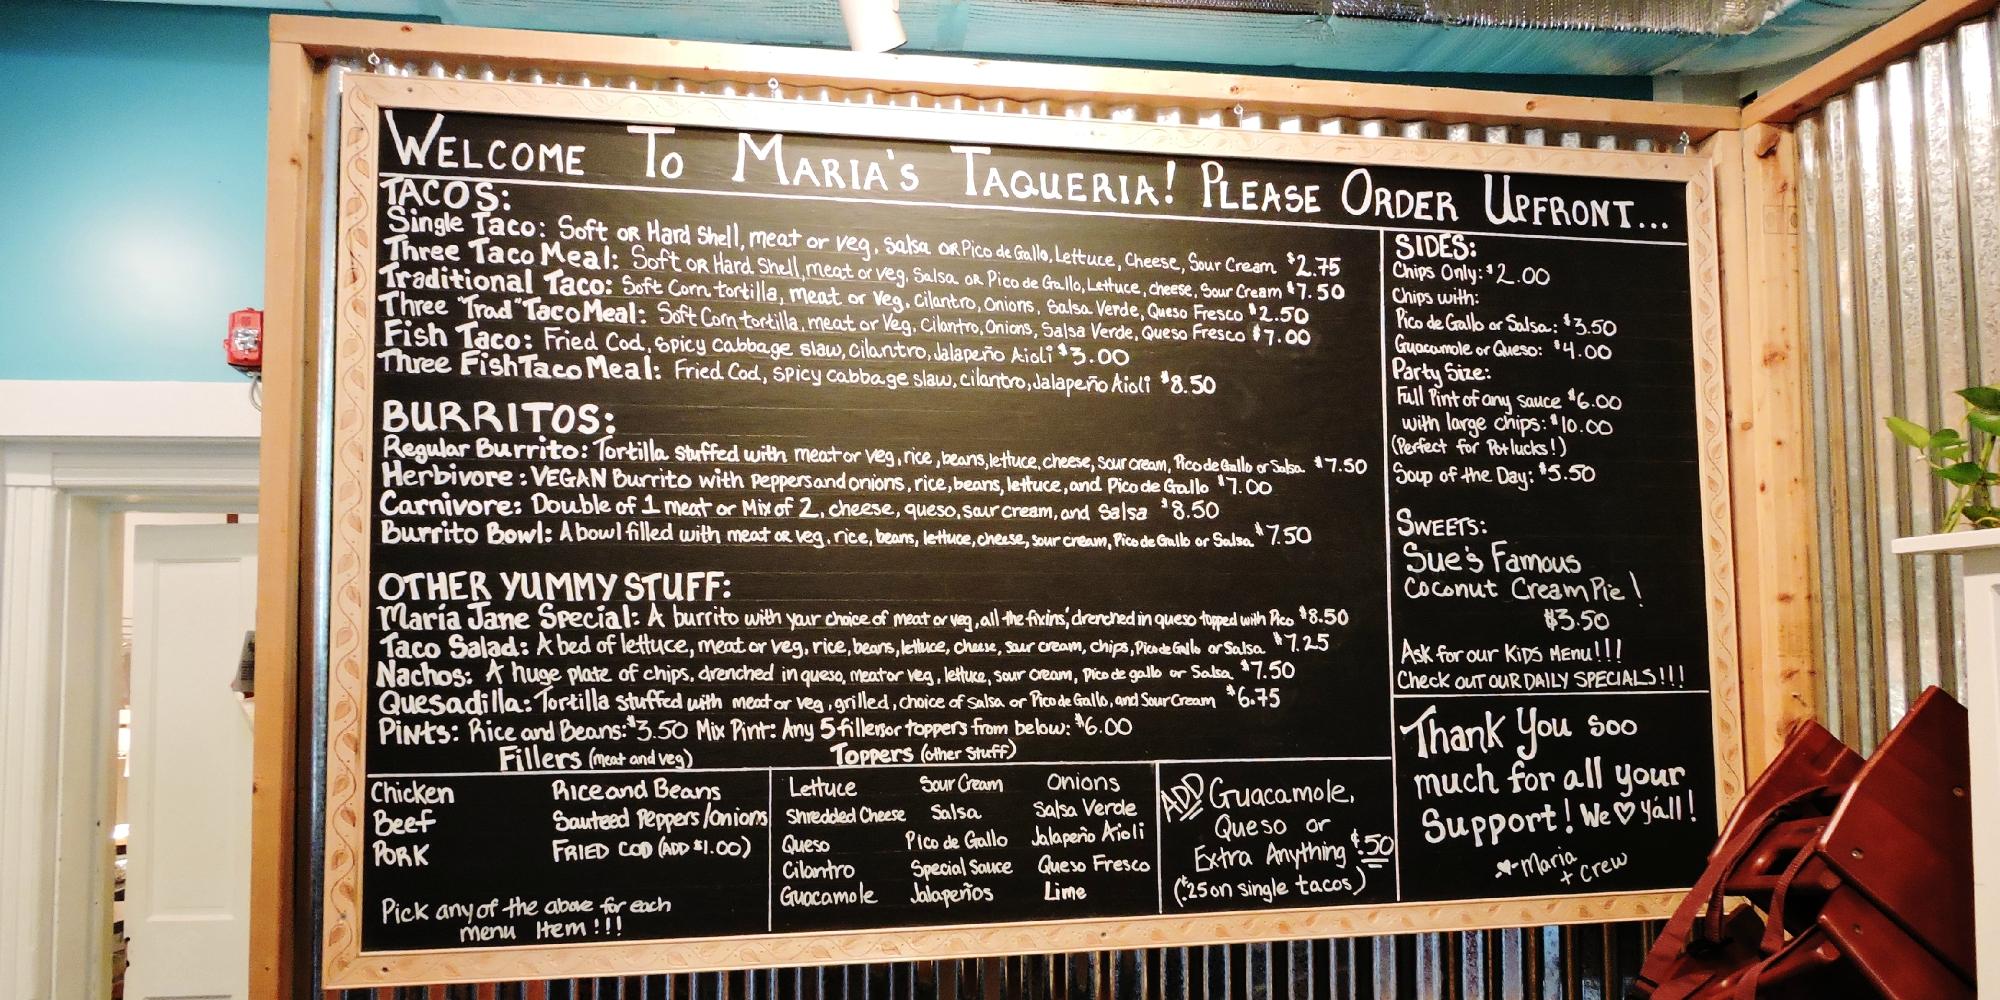 WELCOME TO MARIA'S TAQUERIA! PLEASE ORDER UPFRONT...
TACOS:
Single Taco: Soft or Hard Shell, meat or veg, Salsa or Pico de Gallo, Lettuce, Cheese, Sour Cream $2.75
Three Taco Meal: Soft or Hard Shell, meat or veg, Salsa or Pico de Gallo, Lettuce, cheese, Sour Cream $7.50
Traditional Taco: Soft Corn tortilla, meat or Veg, Cilantro, Onions, Salsa Verde, Queso Fresco $2.50
Three "Trad" Taco Meal: Soft Corn tortilla, meat or Veg, Cilantro, Onions, Salsa Verde, Queso Fresco $7.00
Fish Taco: Fried Cod, Spicy Cabbage slaw, Cilantro, Jalapeño Aioli $3.00
Three Fish Taco Meal: Fried Cod, Spicy cabbage slaw, cilantro, Jalapeño Aioli $8.50
BURRITOS:
Regular Burrito: Tortilla stuffed with meat or veg, rice, beans, lettuce, cheese, sour cream, Pico de Gallo or Salsa $7.50
Herbivore: VEGAN Burrito with peppers and onions, rice, beans, lettuce, and Pico de Gallo $7.00
Carnivore: Double of 1 meat or Mix of 2, cheese, queso, sour cream, and Salsa $8.50
Burrito Bowl: A bowl filled with meat or veg, rice, beans, lettuce, cheese, sour cream, Pico de Gallo or Salsa $7.50
OTHER YUMMY STUFF:
Maria Jane Special: A burrito with your choice of meat or veg, all the fixins', drenched in queso topped with Pico $8.50
Taco Salad: A bed of lettuce, meat or veg, rice, beans, lettuce, cheese, sour cream, chips, Pico de Gallo or Salsa $7.25
Nachos: A huge plate of chips, drenched in queso, meat or veg, lettuce, sour cream, Pico de gallo or Salsa $7.50
Quesadilla: Tortilla stuffed with meat or veg, grilled, choice of Salsa or Pico de Gallo, and Sour Cream $6.75
Pints: Rice and Beans: $3.50 Mix Pint: Any 5 fillers or toppers from below: $6.00
Fillers (meat and veg)
Chicken Rice and Beans
Beef Sauteed Peppers/Onions
Pork FRIED COD (ADD $1.00)
Pick any of the above for each
menu Item!!!
Toppers (other Stuff)
Lettuce Sour Cream Onions
Shredded Cheese Salsa Salsa Verde
Queso Pico de Gallo Jalapeño Aioli
Cilantro Special Sauce Queso Fresco
Guacamole Jalapeños Lime
ADD Guacamole,
Queso or
Extra Anything $.50
($.25 on single tacos)
SIDES:
Chips Only: $2.00
Chips with:
Pico de Gallo or Salsa: $3.50
Guacamole or Queso: $4.00
Party Size:
Full Pint of any sauce $6.00
with large chips: $10.00
(Perfect for Potlucks!)
Soup of the Day: $5.50
SWEETS:
Sue's Famous
Coconut Cream Pie!
$3.50
Ask for our KIDS MENU!!!
Check OUT OUR DAILY SPECIALS!!!
Thank You soo
much for all your
Support! We ♡ y'all!
♥-Maria
+ Crew